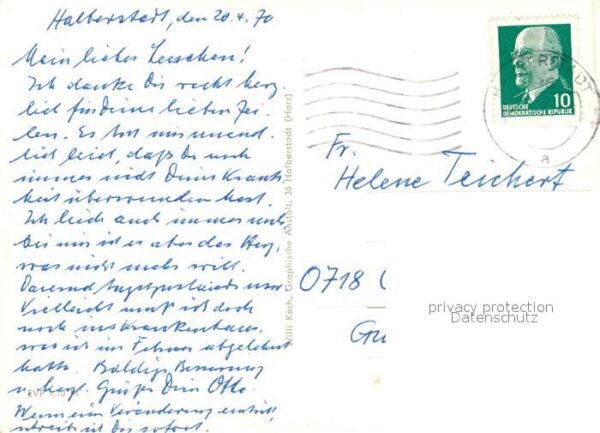 Halberstadt, den 20.4.70
Mein liebes Lenchen!
Ich danke Dir recht herz-
lich für Deine lieben Zei-
len. Es tut uns unend-
lich leid, daß Du noch
immer nicht Deine Krank-
heit überwunden hast.
Ich leide auch immer noch
bei mir ist es aber das Herz,
was nicht mehr will.
Dauernd
Vielleicht muß ich doch
noch ins Krankenhaus,
was ich im Februar abgelehnt
hatte. Baldige Besserung
u. herzl. Grüße Dein Otto
Wenn eine Veränderung eintritt,
schreibe ich Dir sofort.
EVP
Willi Koch, Graphische Anstalt, 36 Halberstadt (Harz)
DEUTSCHE
DEMOKRATISCHE REPUBLIK
10
a
Fr.
Helene Teichert
0718
privacy protection
Datenschutz